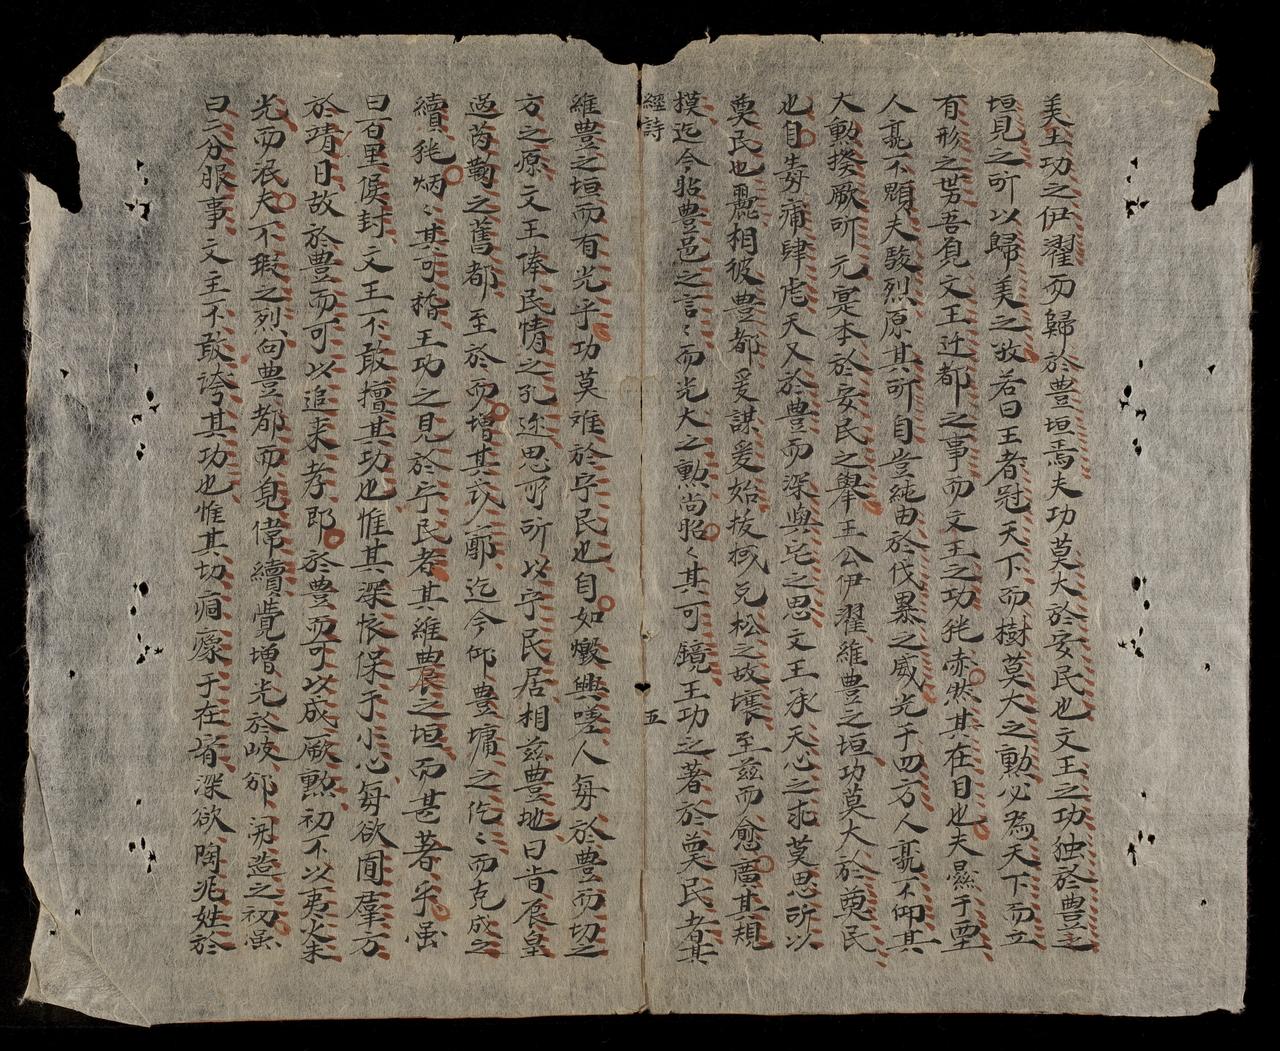 美王功之伊濯而歸於豊垣焉夫功莫大於安民也文王之功独於豊之
垣見之所以歸美之故若曰王者冠天下而樹莫大之勳必為天下而立
有形之勞吾見文王迁都之事而文王之功彰赤然其在目也夫㬎于西
人孰不顕夫駿烈原其所自豈純由於伐暴之威光于四方人孰不仰其
大勳揆厥所元寔本於安民之舉王公伊濯維豊之垣功莫大於奠民
也自毒痡肆虐天又於豊而深與宅之思文王承天心之求莫思所以
奠民也麗相彼豊都爰謀爰始拔棫兌松之故壤至兹而愈廓其規
摸迄今貽豊邑之言〻而光大之勳尚昭〻其可鏡王功之著於奠民者其
經詩
五
維豊之垣而有光乎功莫难於字民也自如燬興嗟人每於豊而切之
方之原文王俸民情之孔迩思所以字民居相兹豊地曰肯㡳皇
過芮鞫之舊都至於而增其式廓迄今仰豊墉之仡〻而克成之
續彰炳〻其可指王功之見於字民者其維豊之垣而甚著乎虽
曰百里侯封文王不敢擅其功也惟其深恢保于小心每欲囿羣方
於靖日故於豊而可以追来孝即於豊而可以成厥勲初不以夷火未
光而泯夫不瑕之烈向豊都而見偉續覺增光於岐邠開造之初虽
曰三分服事文王不敢誇其功也惟其切痌瘝于在宥深欲陶兆姓於